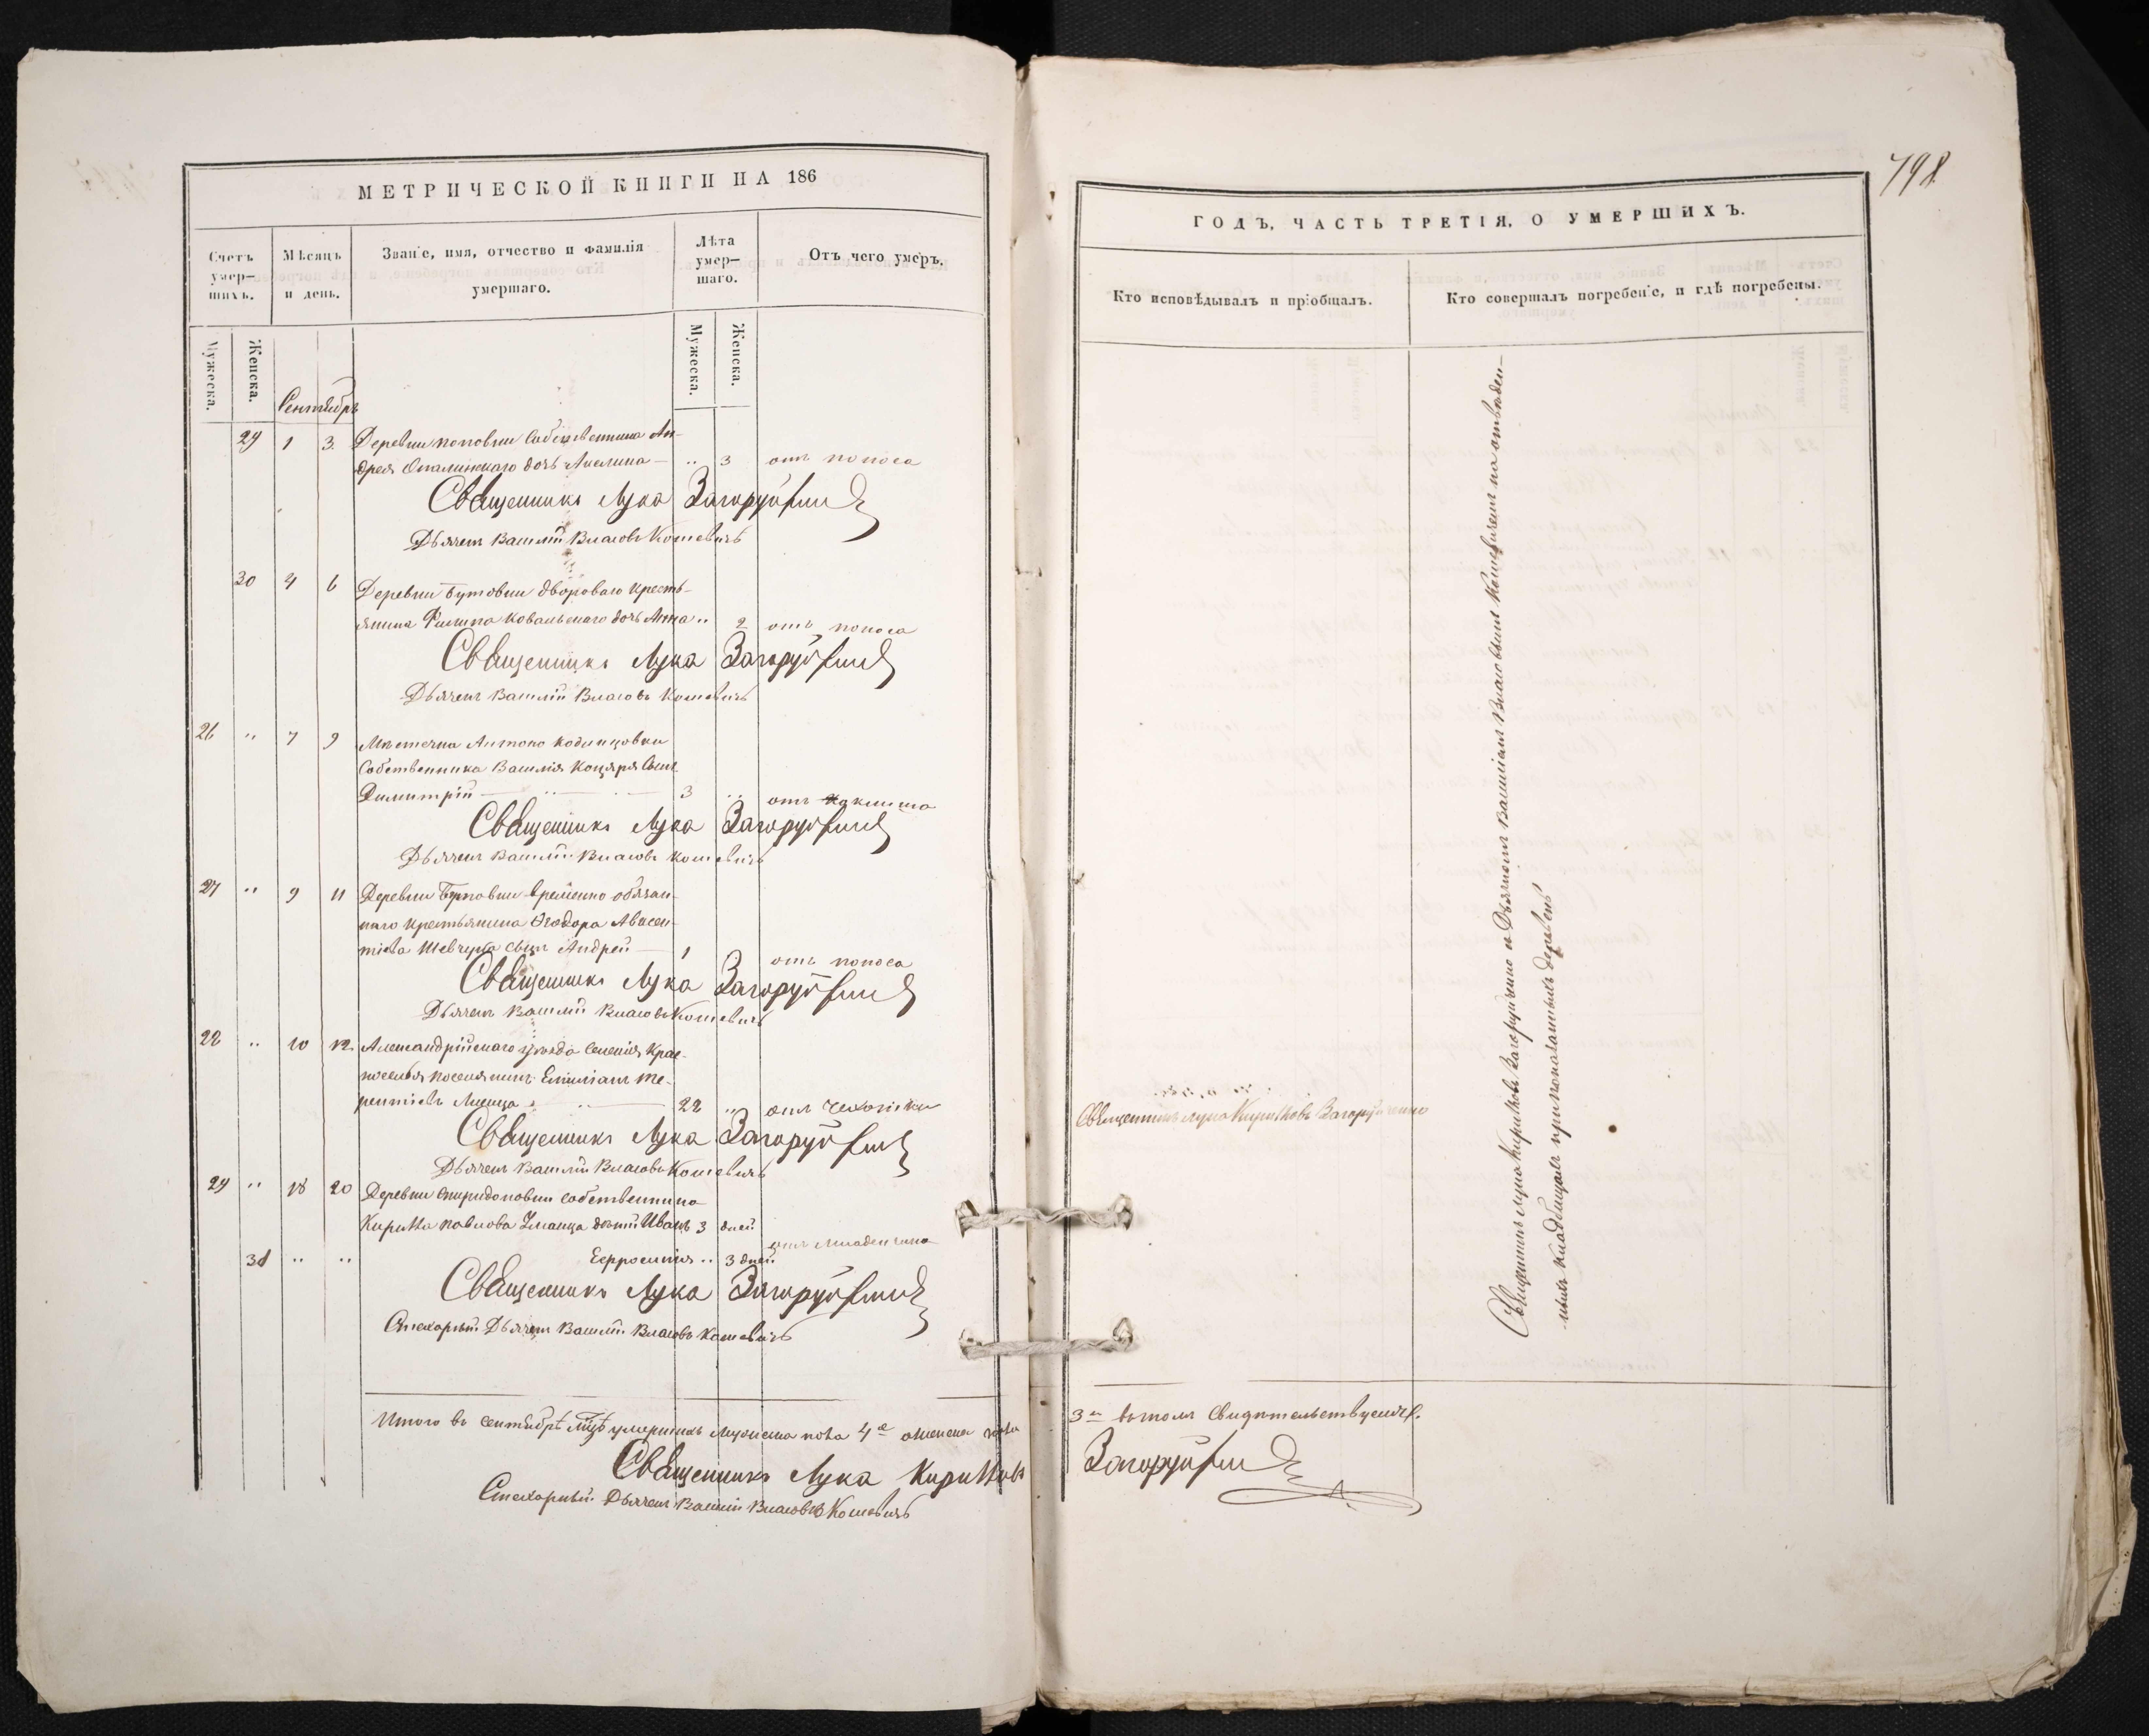 МЕТРИЧЕСКОЙ КНИГИ НА 186
Счетъ умер-шихъ.
Мѣсяцъ и день.
Званіе, имя, отчество и фамилія умершаго.
Лѣта умер-шаго.
Отъ чего умеръ.
Мужеска.
Женска.
Мужеска.
Женска.
Сентябрь
29 1 3 Деревни поповки собственника Ан-
дрея Опалинскаго дочь Акелина — .. 3 отъ поноса
Священникъ Лука Загоруйченко
Дьячекъ Василій Власовъ Кошевичъ
30 4 6 Деревни Бутовки двороваго кресть-
янина Филипа Ковальскаго дочь Анна .. 2 отъ поноса
Священникъ Лука Загоруйченко
Дьячекъ Василій Власовъ Кошевичъ
26 .. 7 9 Мѣстечка Антоно кодинцовки
собственника Василія Коцяря сынъ
Димитрій — 3 .. отъ кашля
Священникъ Лука Загоруйченко
Дьячекъ Василій Власовъ Кошевичъ
27 .. 9 11 Деревни Бутовки временно обязан-
наго крестьянина Ѳеодора Авксен-
тіева Шевчука сынъ Андрей — 1
отъ поноса
Священникъ Лука Загоруйченко
Дьячекъ Василій Власовъ Кошевичъ
28 .. 10 12 Александрійскаго уѣзда селенія Крас-
носелья поселянинъ Емиліанъ Те-
рентіевъ Лисица — 22 .. отъ чахотки
Священникъ Лука Загоруйченко
Дьячекъ Василій Власовъ Кошевичъ
29 .. 18 20 Деревни Спиридоновки собственника
Кирилла Павлова дѣти Иванъ 3 дней
отъ младенчика
31 .. .. Евфросинія .. 3 дней
Священникъ Лука Загоруйченко
Стихарный Дьячекъ Василій Власовъ Кошевичъ
Итого въ сентябрѣ мцѣ умершихъ мужеска пола 4е а женска пола
Священникъ Лука Кирилловъ
Стихарный Дьячекъ Василій Власовъ Кошевичъ
798
ГОДЪ, ЧАСТЬ ТРЕТІЯ, О УМЕРШИХЪ.
Кто исповѣдывалъ и пріобщалъ.
Кто совершалъ погребеніе, и гдѣ погребены.
Священникъ Лука Кирилловъ Загоруйченко
Священникъ Лука Кирилловъ Загоруйченко съ Дьячкомъ Василіемъ Власовымъ Кошевичемъ на отведен-
ныхъ кладбищахъ при показанныхъ деревень
3и въ томъ свидѣтельствуемъ.
Загоруйченко